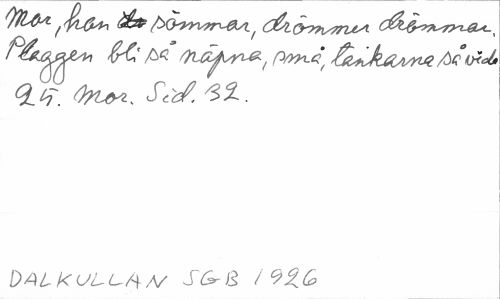 Mor, hon sömmar, drömmer drömmar.
Plaggen bli så näpna, små, tankarna så vida
25. Mor. Sid. 32.
DALKULLAN SGB 1926